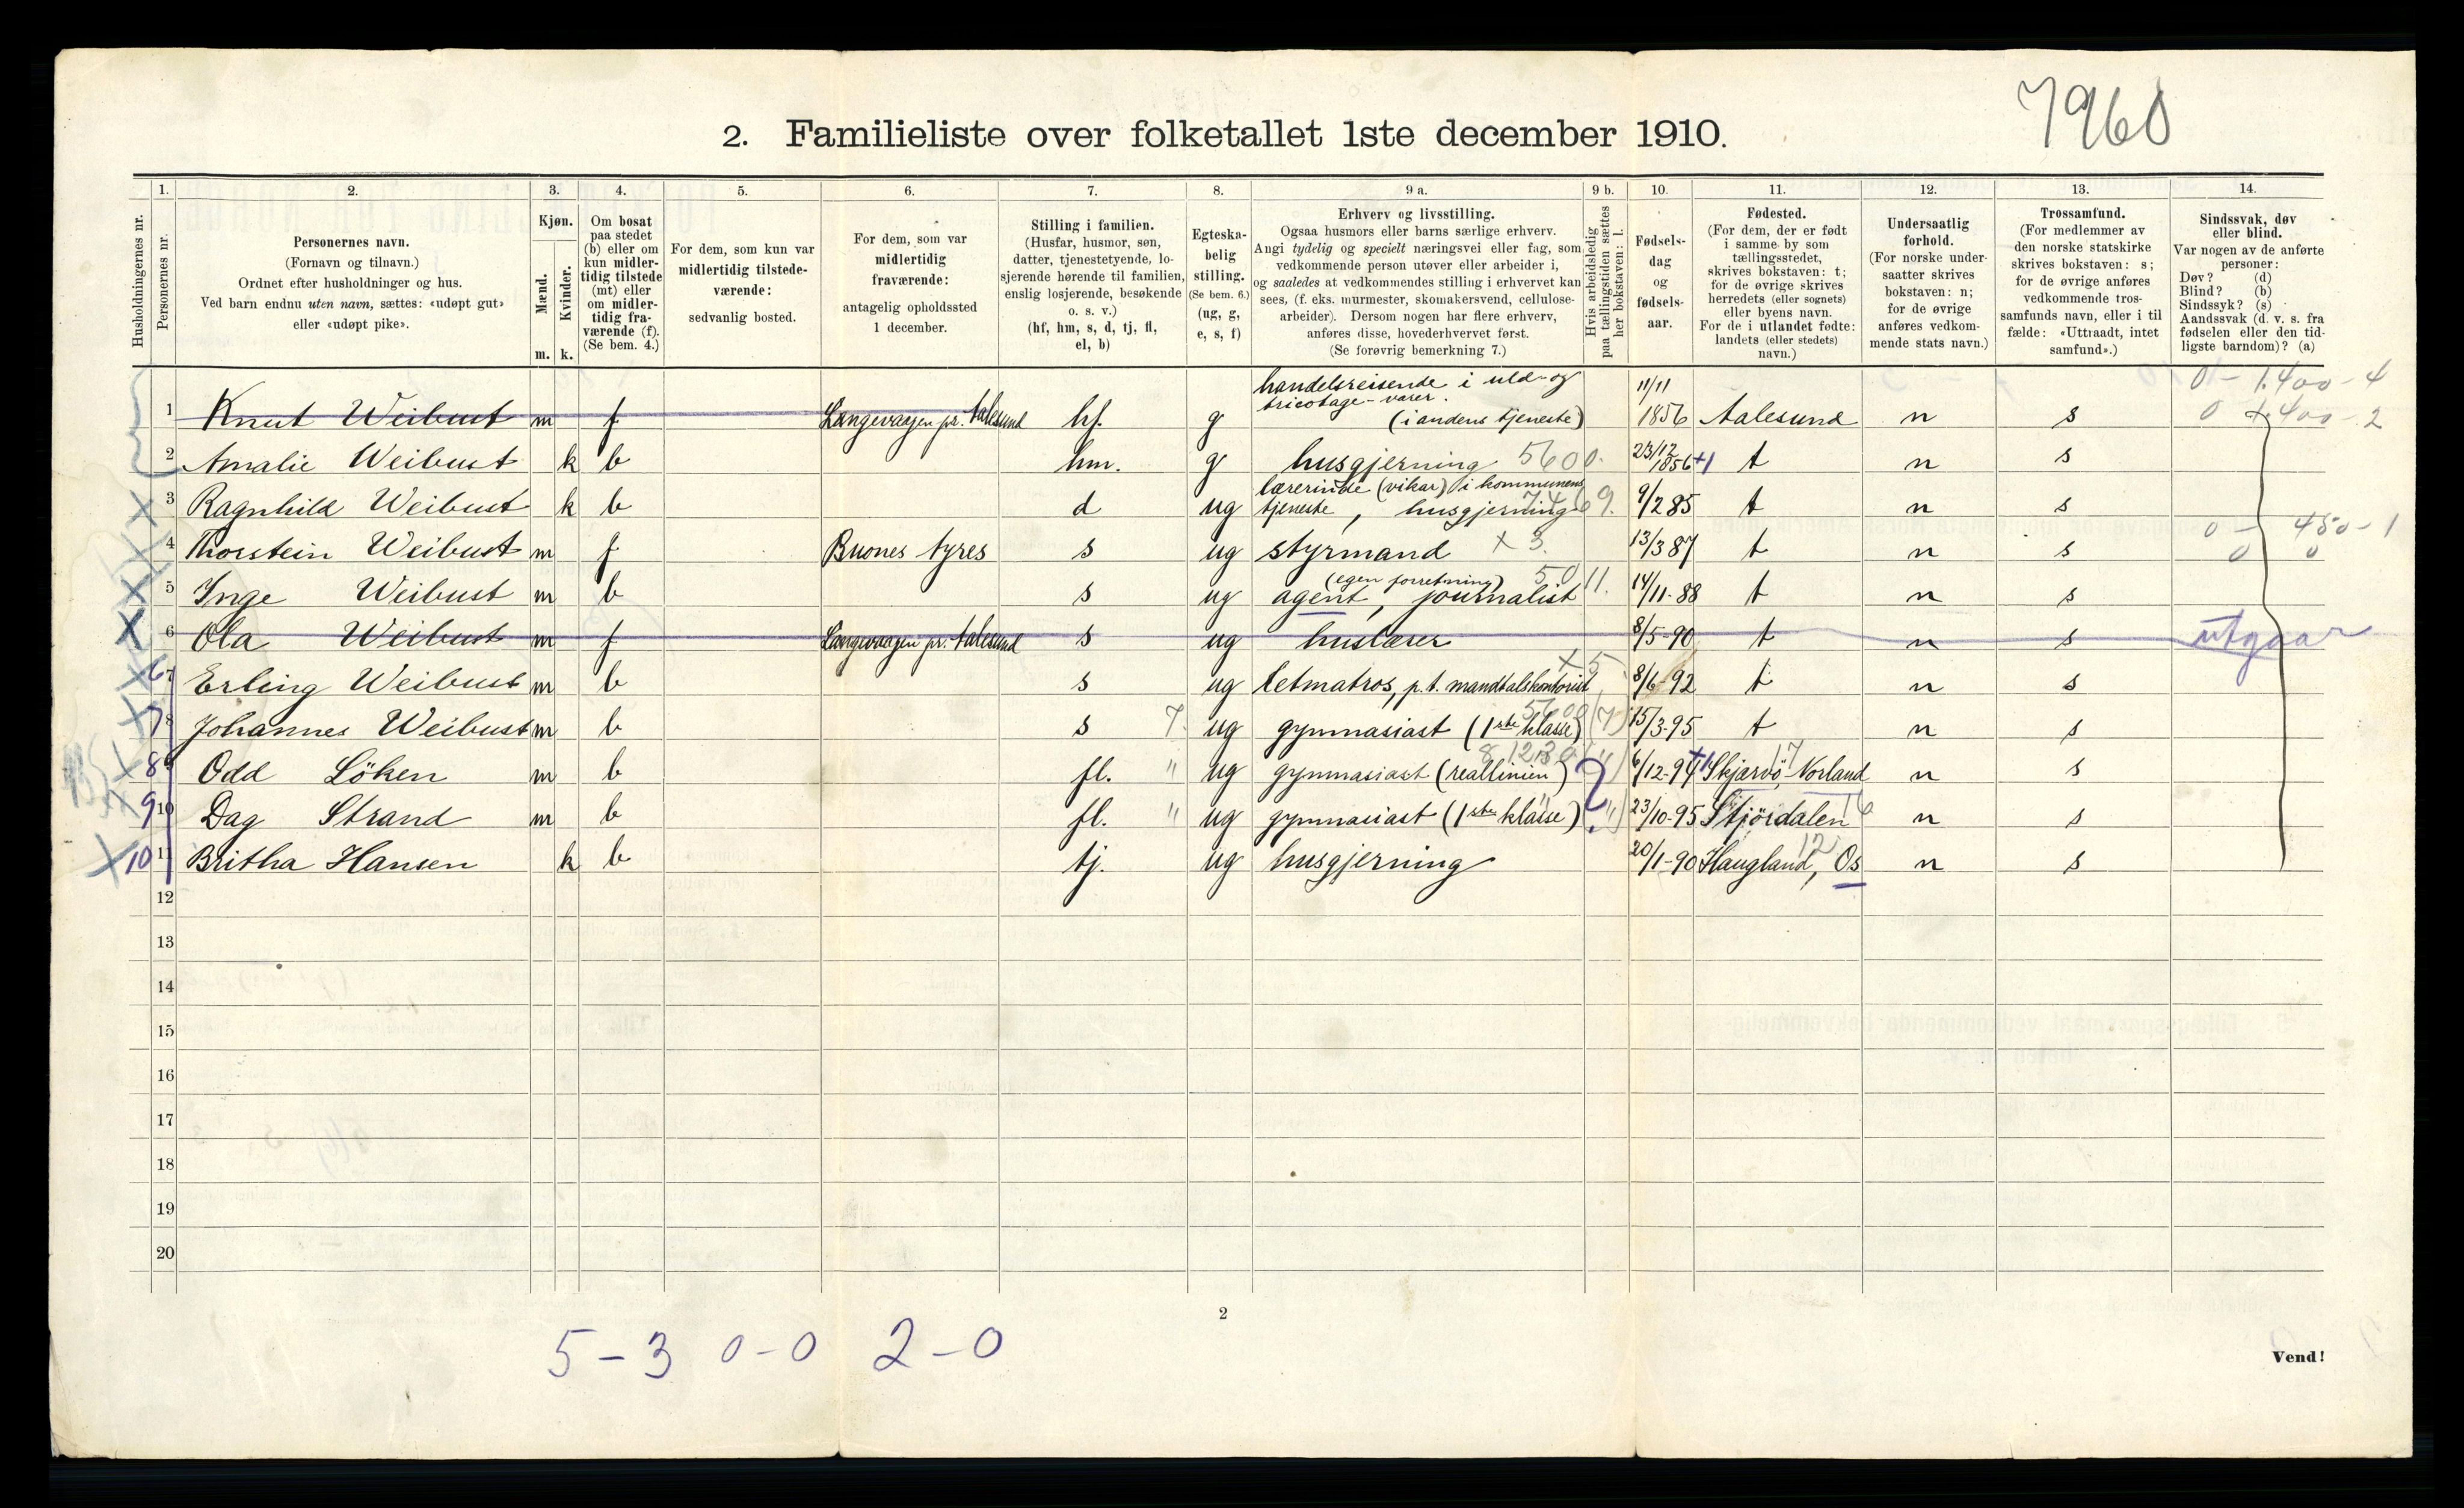 7960
2. Familieliste over folketallet 1ste december 1910.
Husholdningernes nr.
1. Personernes nr.
2. Personernes navn.
(Fornavn og tilnavn.)
Ordnet efter husholdninger og hus.
Ved barn endnu uten navn, sættes: «udøpt gut»
eller «udøpt pike».
3. Kjøn.
Mænd. m.
Kvinder. k.
4. Om bosat
paa stedet
(b) eller om
kun midler-
tidig tilstede
(mt) eller
om midler-
tidig fra-
værende (f).
(Se bem. 4.)
5. For dem, som kun var
midlertidig tilstede-
værende:
sedvanlig bosted.
6. For dem, som var
midlertidig
fraværende:
antagelig opholdssted
1 december.
7. Stilling i familien.
(Husfar, husmor, søn,
datter, tjenestetyende, lo-
sjerende hørende til familien,
enslig losjerende, besøkende
o. s. v.)
(hf, hm, s, d, tj, fl,
el, b)
8. Egteska-
belig
stilling.
(Se bem. 6.)
(ug, g,
e, s, f)
9 a. Erhverv og livsstilling.
Ogsaa husmors eller barns særlige erhverv.
Angi tydelig og specielt næringsvei eller fag, som
vedkommende person utøver eller arbeider i,
og saaledes at vedkommendes stilling i erhvervet kan
sees, (f. eks. murmester, skomakersvend, cellulose-
arbeider). Dersom nogen har flere erhverv,
anføres disse, hovederhvervet først.
(Se forøvrig bemerkning 7.)
9 b. Hvis arbeidsledig
paa tællingstiden sættes
her bokstaven: l.
10. Fødsels-
dag
og
fødsels-
aar.
11. Fødested.
(For dem, der er født
i samme by som
tællingsstedet,
skrives bokstaven: t;
for de øvrige skrives
herredets (eller sognets)
eller byens navn.
For de i utlandet fødte:
landets (eller stedets)
navn.)
12. Undersaatlig
forhold.
(For norske under-
saatter skrives
bokstaven: n;
for de øvrige
anføres vedkom-
mende stats navn.)
13. Trossamfund.
(For medlemmer av
den norske statskirke
skrives bokstaven: s;
for de øvrige anføres
vedkommende tros-
samfunds navn, eller i til
fælde: «Uttraadt, intet
samfund».)
14. Sindssvak, døv
eller blind.
Var nogen av de anførte
personer:
Døv? (d)
Blind? (b)
Sindssyk? (s)
Aandssvak (d. v. s. fra
fødselen eller den tid-
ligste barndom)? (a)
handelsreisende i uld- og 11/11 0 - 1.400 - 4
tricotage-varer.
1 Knut Weibust m f Langevaagen pr. Aalesund hf. g (i andens tjeneste) 1856 Aalesund n s
2 Amalie Weibust k b hm. g husgjerning 5600. 23/12 1856 +1 t n s
lærerinde (vikar) i kommunens
3 Ragnhild Weibust k b d ug tjeneste, husgjerning 9. 9/2 85 t n s
0 - 450 - 1
4 Thorstein Weibust m f Buones Ayres s ug styrmand x 3. 13/3 87 t n s 0 0
(egen forretning)
5 Inge Weibust m b s ug agent, journalist 14/11-88 t n s
6 Ola Weibust m f Langevaagen pr. Aalesund s ug huslærer 8/5-90 t n s utgaar
6 7 Erling Weibust m b s ug letmatros, p.t. mandtalskontorist 8/6-92 t n s
7 8 Johannes Weibust m b s 7. ug gymnasiast (1ste klasse) (7) 15/3-95 t n s
8 9 Odd Löken m b fl. " ug gymnasiast (reallinien) 6/12-94 +1 Skjærvö, Norland 17 n s
9 10 Dag Strand m b fl. " ug gymnasiast (1ste klasse) 23/10-95 Stjördalen 16 n s
10 11 Britha Hansen k b tj. ug husgjerning 20/1-90 Haugland, Os 12 n s
12
13
14
15
16
17
18
19
20
2
5-3 0-0 2-0
Vend!